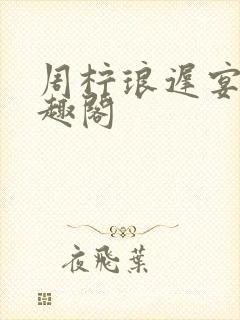 周梓琅遲宴
趣閣
夜飛葉